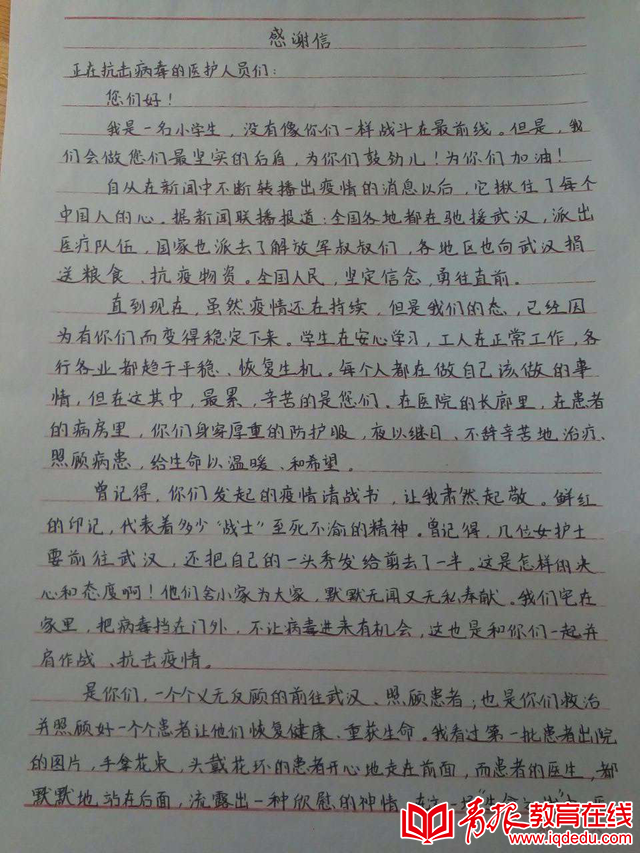 感谢信
正在抗击病毒的医护人员们：
您们好！
我是一名小学生，没有像你们一样战斗在最前线。但是，我
们会做您们最坚实的后盾，为你们鼓劲儿！为你们加油！
自从在新闻中不断转播出疫情的消息以后，它揪住了每个
中国人的心。据新闻联播报道：全国各地都在驰援武汉，派出
医疗队伍，国家也派去了解放军叔叔们，各地区也向武汉捐
送粮食、抗疫物资。全国人民，坚定信念，勇往直前。
直到现在，虽然疫情还在持续，但是我们的态，已经因
为有你们而变得稳定下来。学生在安心学习，工人在正常工作，各
行各业都趋于平稳、恢复生机。每个人都在做自己该做的事
情，但在这其中，最累，辛苦的是您们。在医院的长廊里，在患者
的病房里，你们身穿厚重的防护服，夜以继日、不辞辛苦地治疗、
照顾病患，给生命以温暖、和希望。
曾记得，你们发起的疫情请战书，让我肃然起敬。鲜红
的印记，代表着多少“战士”至死不渝的精神。曾记得，几位女护士
要前往武汉，还把自己的一头秀发给剪去了一半。这是怎样的决
心和态度啊！他们舍小家为大家，默默无闻又无私奉献。我们宅在
家里，把病毒挡在门外，不让病毒进来有机会，这也是和你们一起并
肩作战、抗击疫情。
是你们，一个个义无反顾的前往武汉、照顾患者；也是你们救治
并照顾好一个个患者让他们恢复健康、重获生命。我看过第一批患者出院
的图片，手拿花束，头戴花环的患者开心地走在前面，而患者的医生，都
默默地站在后面，流露出一种欣慰的神情。在这一场“生命
青报教育在线
www.iqdedu.com